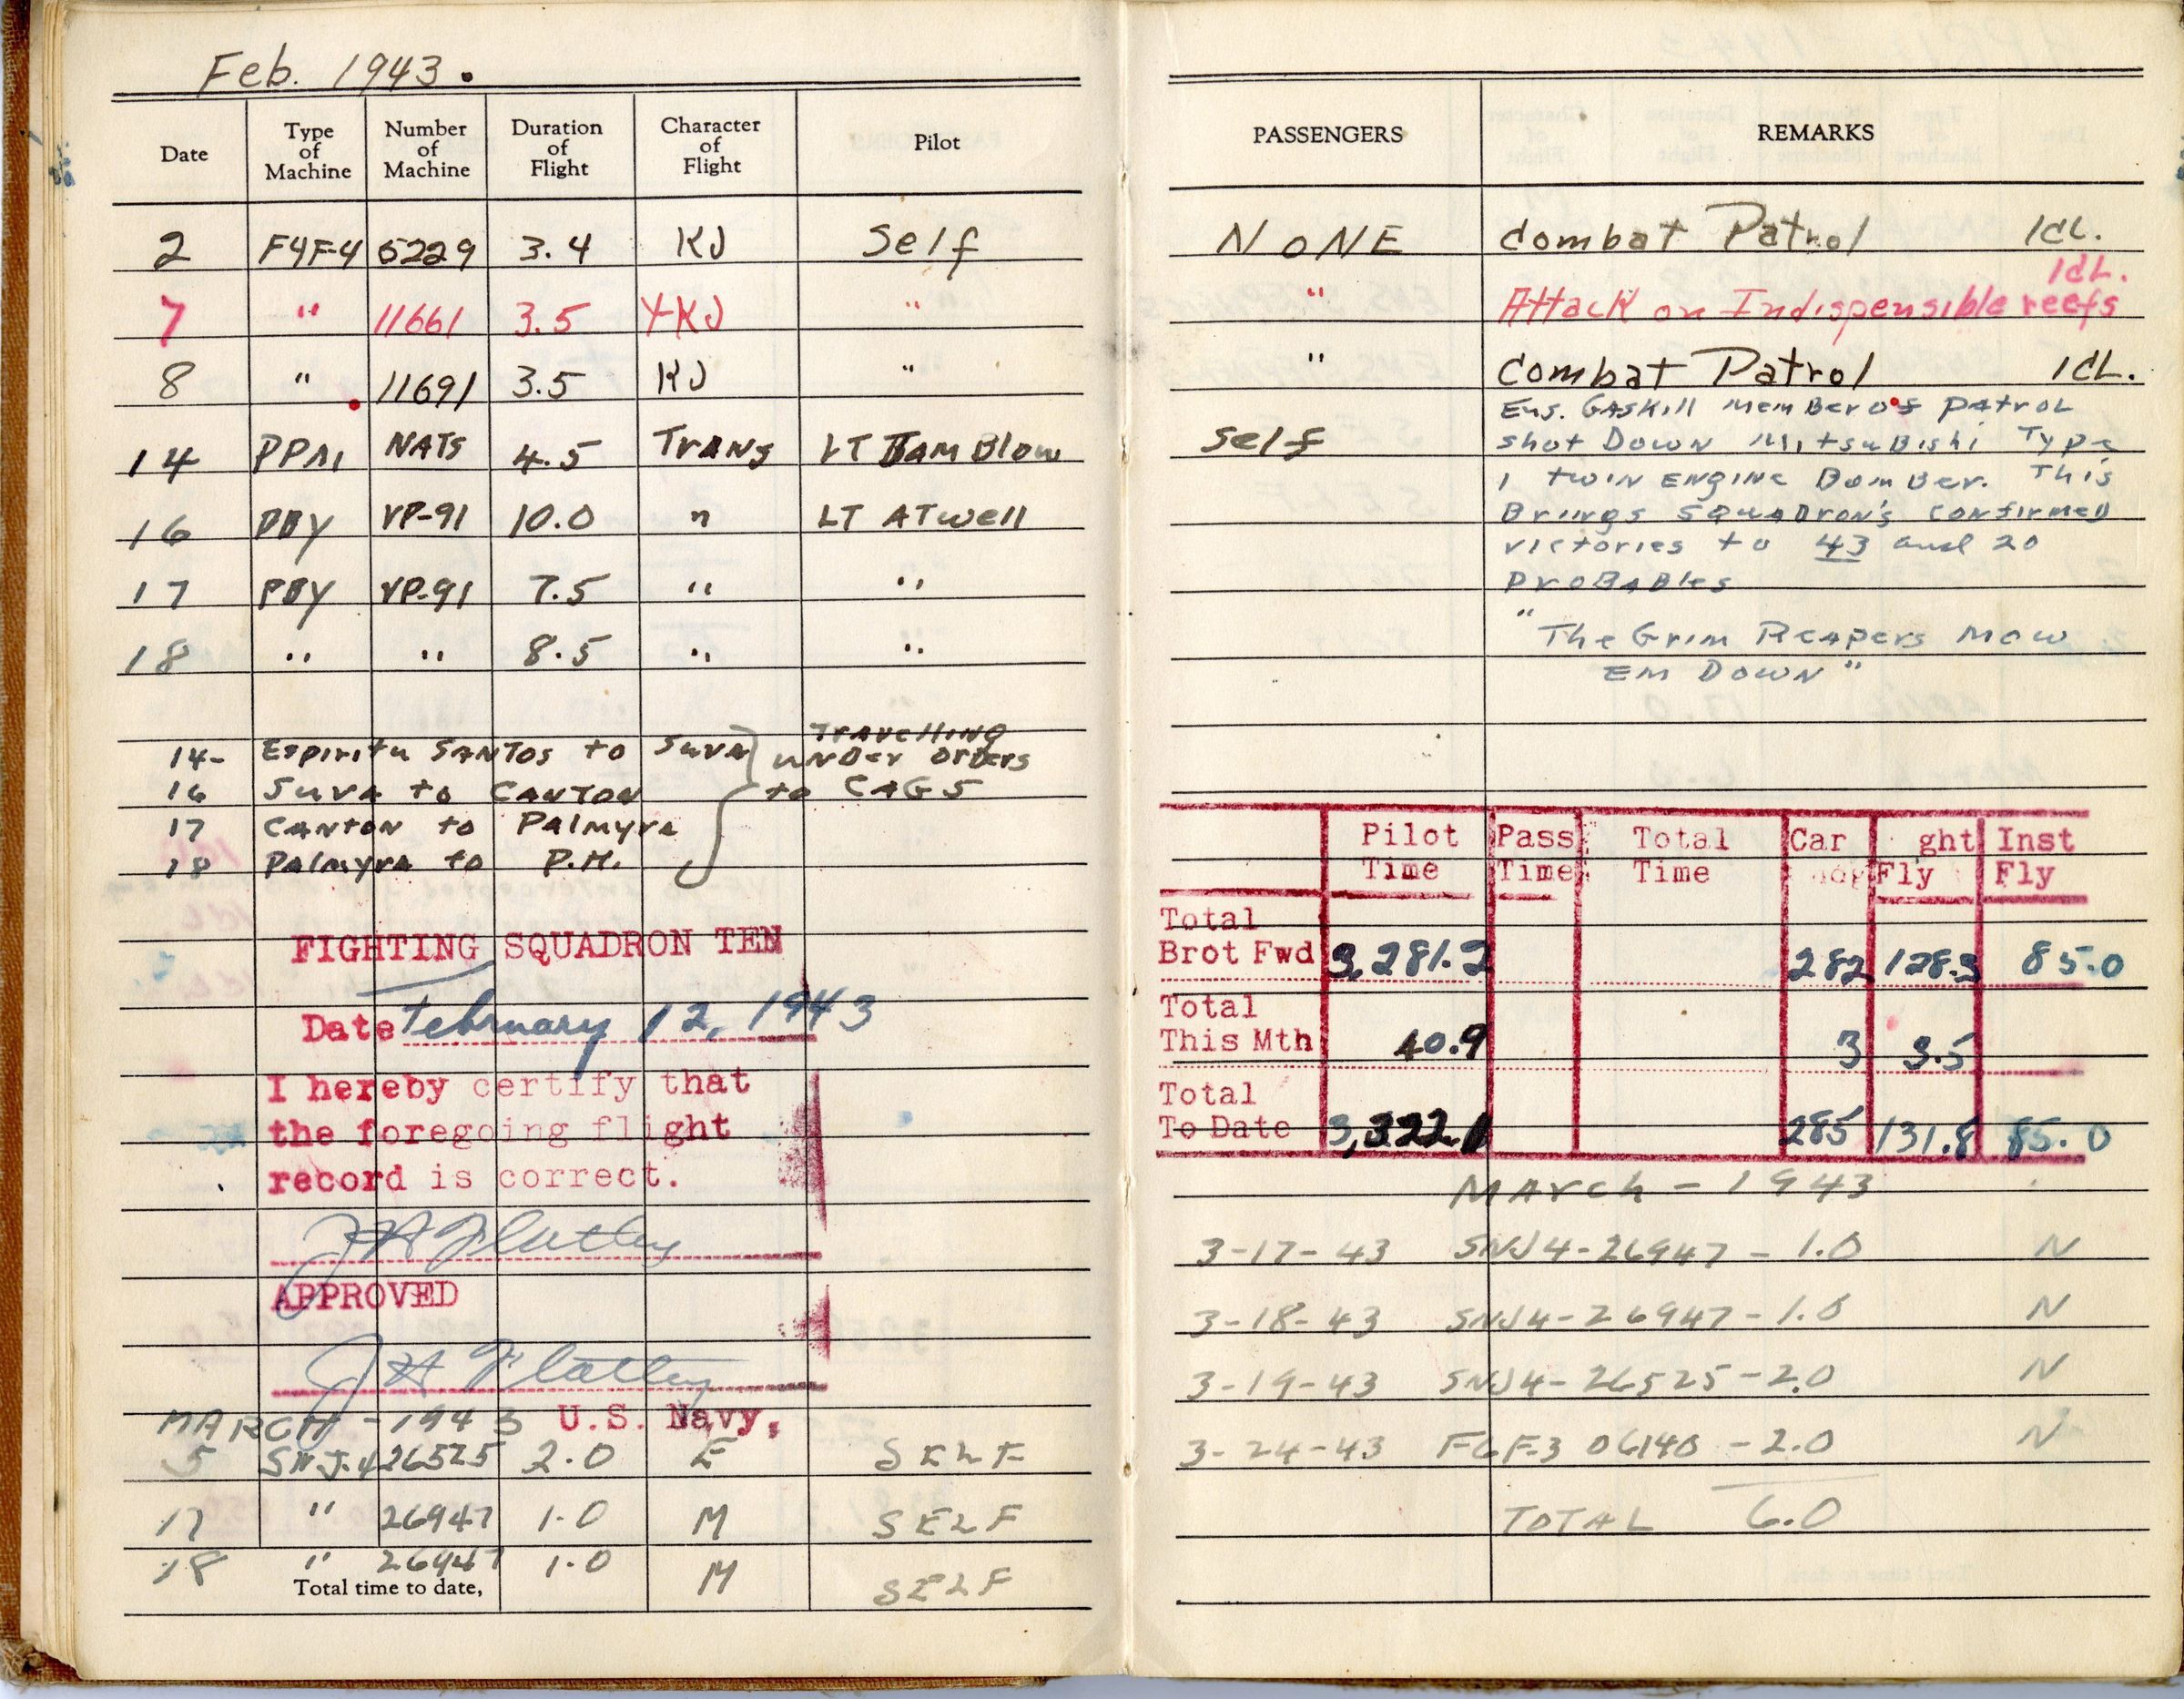 Feb. 1943.
Date Type of Machine Number of Machine Duration of Flight Character of Flight Pilot
2 F4F-4 5229 3.4 KJ Self
7 " 11661 3.5 YKJ "
8 " 11691 3.5 KJ "
14 NATS 4.5 TrANs LT
16 PBY VP-91 10.0 " LT ATwell
17 PBY VP-91 7.5 " "
18 " " 8.5 " "
14- Espiritu SANTOS to Suva
16 Suva to CANTON
17 CANTON to Palmyra
18 Palmyra to P.H.
Travelling
under orders
to CAG 5
FIGHTING SQUADRON TEN
Date February 12, 1943
I hereby certify that
the foregoing flight
record is correct.
J H Flatley
APPROVED
J H Flatley
U.S. Navy,
MARCH - 1943
5 SNJ-4 26525 2.0 E SELF
17 " 26947 1.0 M SELF
18 " 26947 1.0 M SELF
Total time to date,
PASSENGERS REMARKS
NONE Combat Patrol 1CL.
" Attack on Indispensible reefs 1CL.
" Combat Patrol 1CL.
Ens. GASKill memBer of patroL
Self shot Down MitsuBishi Type
1 twin ENgINe BomBer. This
Brings SquADron's confirmeD
victories to 43 and 20
proBABles
"The Grim Reapers Mow
EM DOWN"
Pilot Time Pass Time Total Time Car ght Fly Inst Fly
Total Brot Fwd 3,281.2 282 128.3 85.0
Total This Mth 40.9 3 3.5
Total To Date 3,322.1 285 131.8 85.0
MArch - 1943
3-17-43 SNJ4-26947 - 1.0 N
3-18-43 SNJ4-26947 - 1.0 N
3-19-43 SNJ4-26525 - 2.0 N
3-24-43 F6F-3 06140 - 2.0 N
TOTAL 6.0